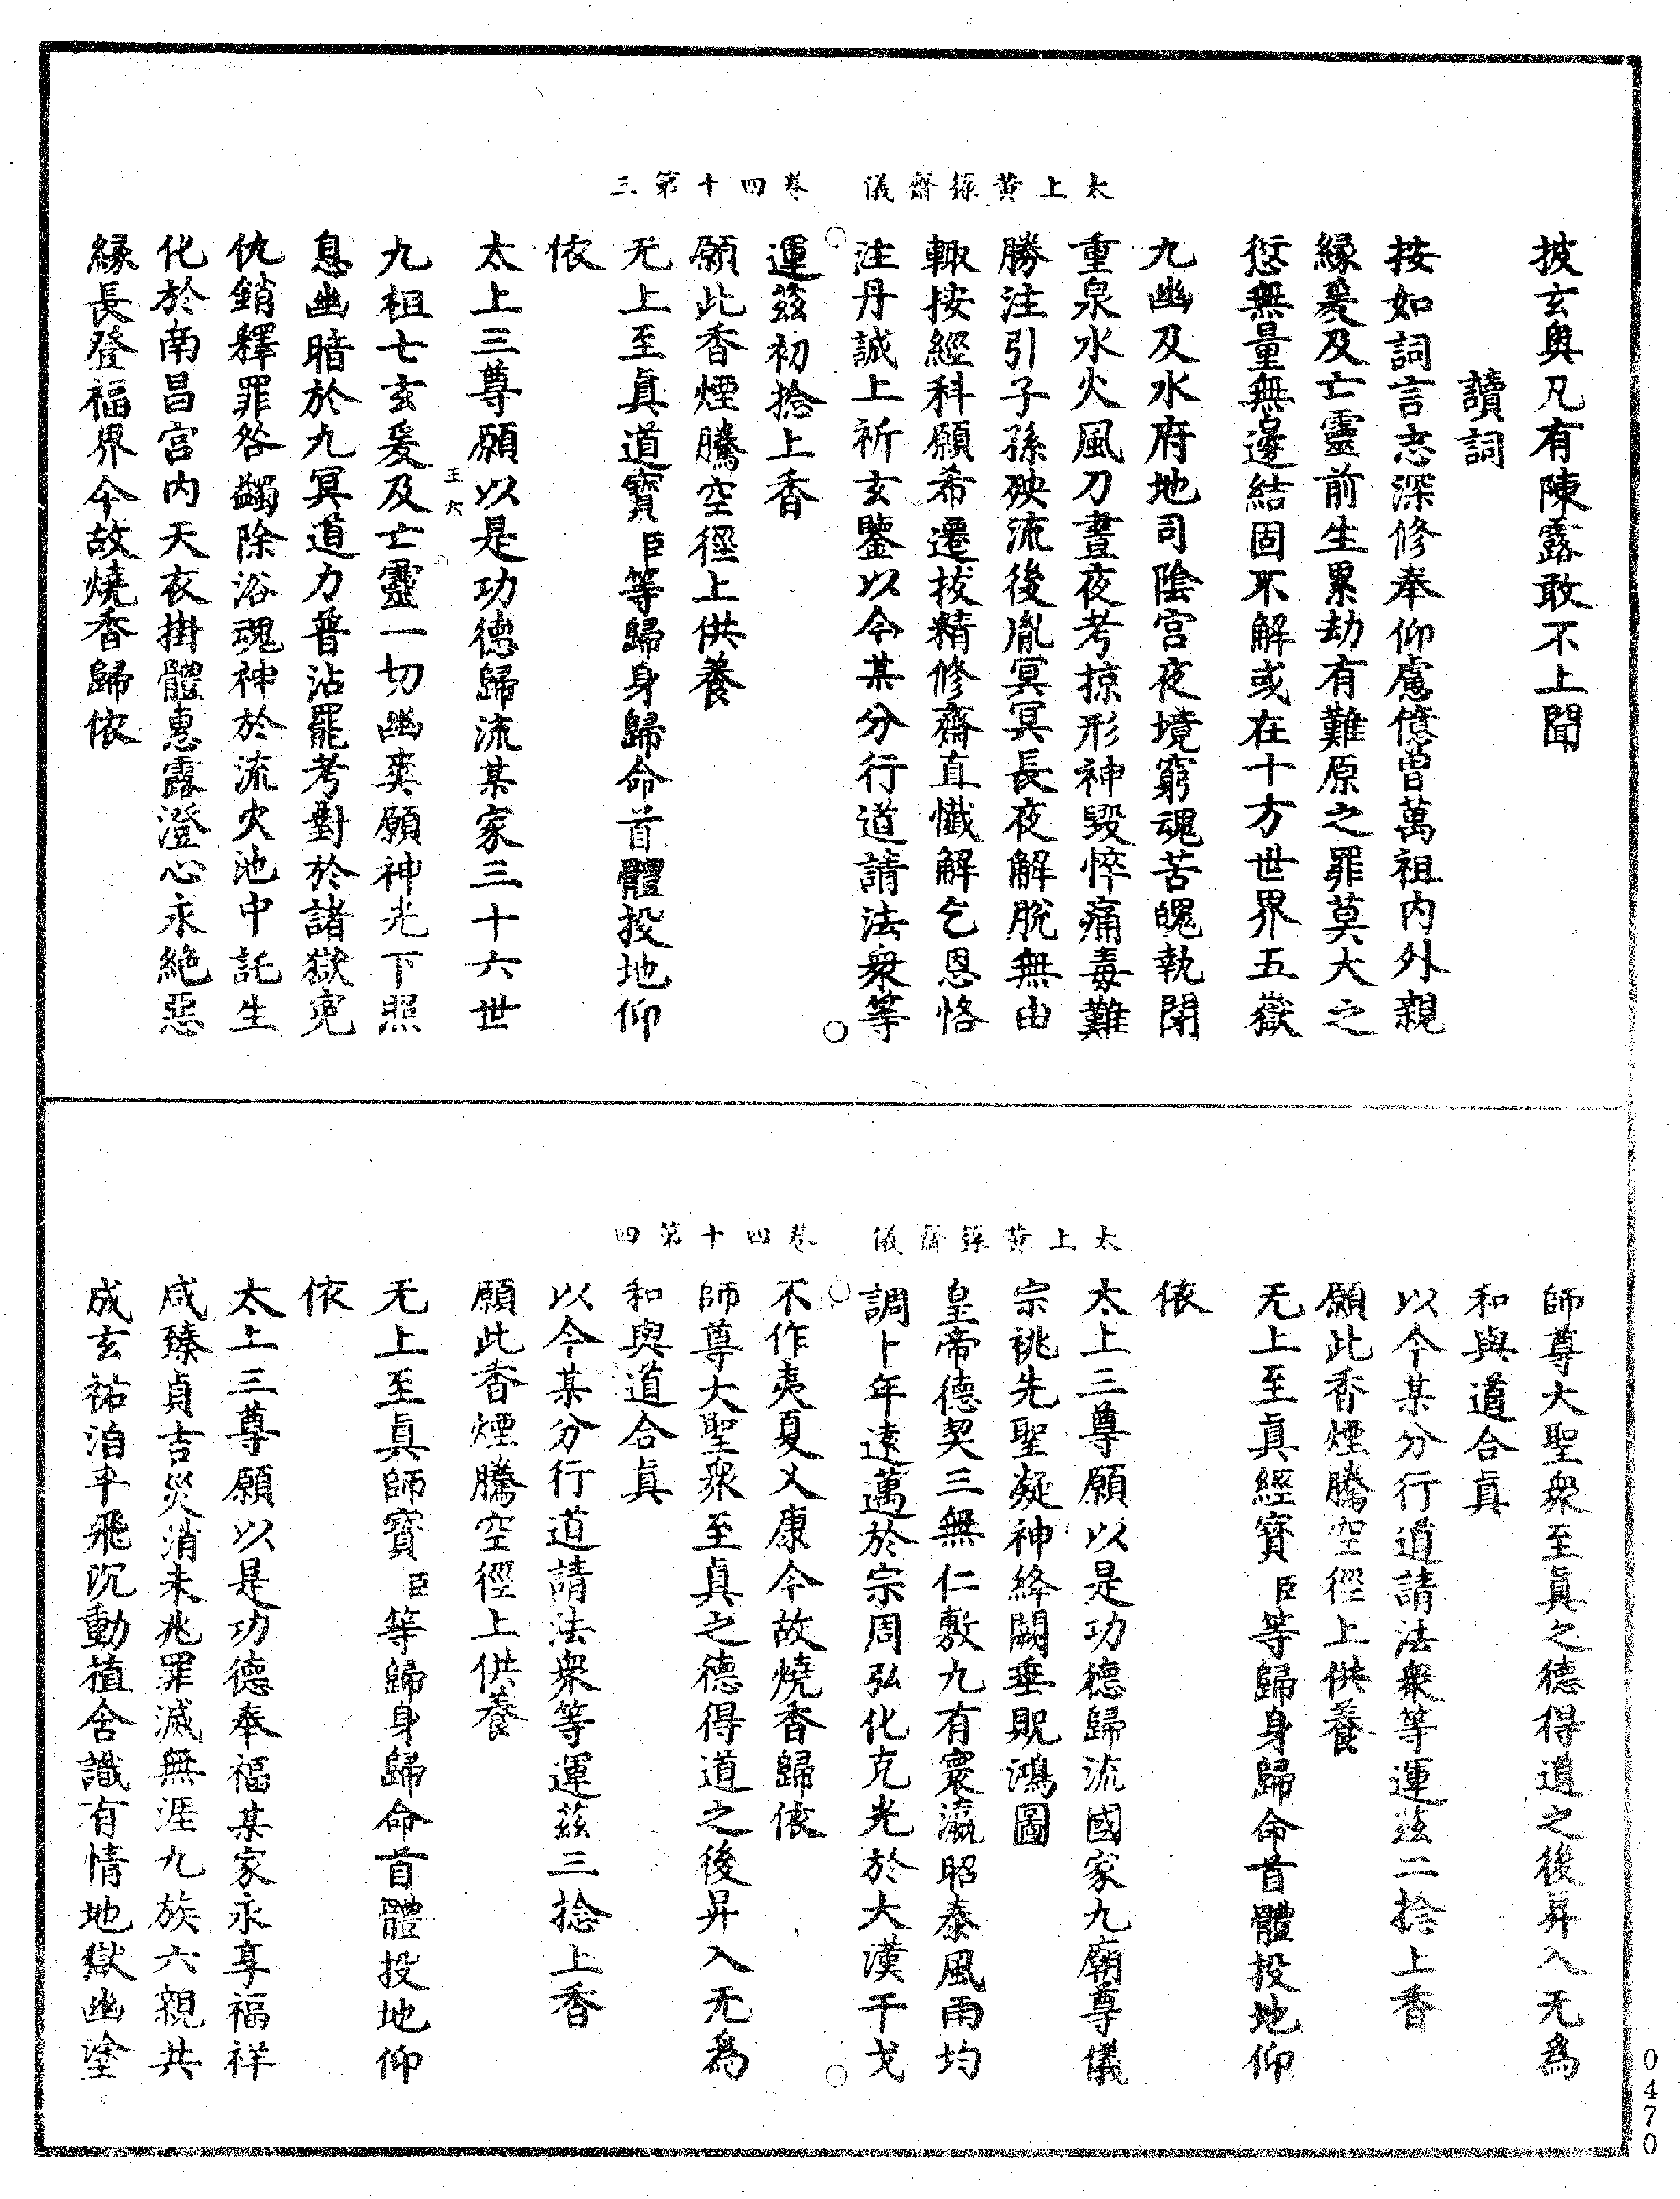 太上黃籙齋儀　卷四十第三
披玄奧凡有陳露敢不上聞
讀詞
按如詞言志深修奉仰慮億曾萬祖內外親
緣爰及亡靈前生累劫有難原之罪莫大之
愆無量無邊結固不解或在十方世界五嶽
九幽及水府地司陰宮夜境窮魂苦魄執閉
重泉水火風刀晝夜考掠形神毀悴痛毒難
勝注引子孫殃流後胤冥冥長夜解脫無由
輒按經科願希遷拔精修齋直懺解乞恩恪
注丹誠上祈玄鑒以今某分行道請法衆等
運茲初捻上香
願此香煙騰空徑上供養
无上至眞道寶臣等歸身歸命首體投地仰
依
太上三尊願以是功德歸流某家三十六世
王六
九祖七玄爰及亡靈一切幽爽願神光下照
息幽暗於九冥道力普沾罷考對於諸獄寃
仇銷釋罪咎蠲除浴魂神於流火池中託生
化於南昌宮內天衣掛體惠露澄心永絶惡
緣長登福界今故燒香歸依
太上黃籙齋儀　卷四十第四
師尊大聖衆至眞之德得道之後昇入无爲
和與道合眞
以今某分行道請法衆等運茲二捻上香
願此香煙騰空徑上供養
无上至眞經寶臣等歸身歸命首體投地仰
依
太上三尊願以是功德歸流國家九廟尊儀
宗祧先聖凝神絳闕垂貺鴻圖
皇帝德契三無仁敷九有寰瀛昭泰風雨均
調卜年遠邁於宗周弘化克光於大漢干戈
不作夷夏乂康今故燒香歸依
師尊大聖衆至眞之德得道之後昇入无爲
和與道合眞
以今某分行道請法衆等運茲三捻上香
願此香煙騰空徑上供養
无上至眞師寶臣等歸身歸命首體投地仰
依
太上三尊願以是功德奉福某家永享福祥
咸臻貞吉災消未兆罪滅無涯九族六親共
成玄祐洎乎飛沉動植含識有情地獄幽塗
0470